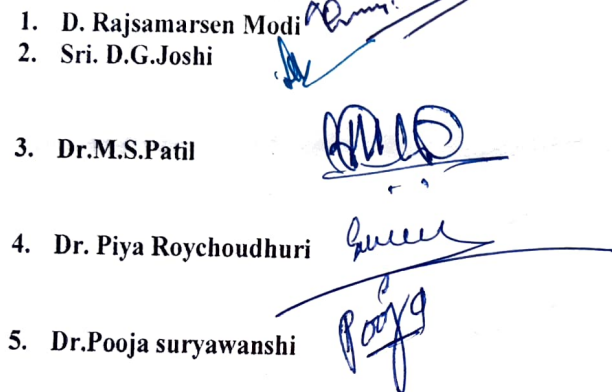 1. D. Rajsamarsen Modi
2. Sri. D.G.Joshi
3. Dr.M.S.Patil
4. Dr. Piya Roychoudhuri
5. Dr.Pooja suryawanshi Pooja